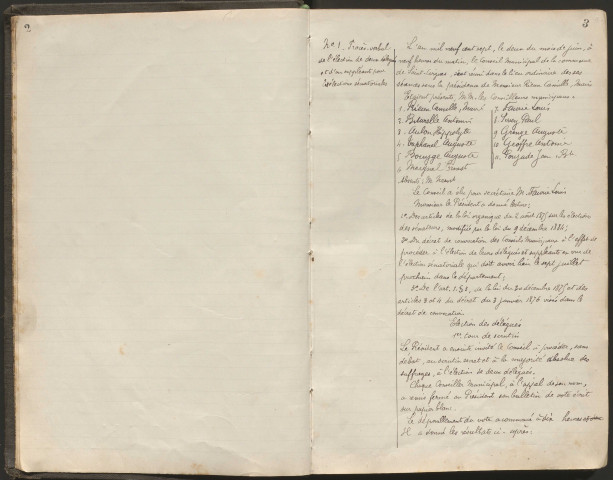 2
3
N° 1. Procès-verbal
de l'élection de deux délégués
et d'un suppléant pour
les élections sénatoriales
L'an mil neuf cent sept, le deux du mois de juin, à
neuf heures du matin, le Conseil Municipal de la commune
de Saint- s'est réuni dans le lieu ordinaire de ses
séances sous la présidence de Monsieur Camille, Maire
Étaient présents, MM. les Conseillers municipaux:
1. Camille, Maire
2. Antonin
3. Aubon Hippolyte
4. Auguste
5. Auguste
6. Ernest
7. Louis
8. Paul
9. Grange Auguste
10. Geoffre Antoine
11. Jean
Absent: M.
Le Conseil a élu pour secrétaire M. Louis
Monsieur le Président a donné lecture:
1° Des articles de la loi organique du 2 août 1875 sur les élections
des sénateurs, modifiée par la loi du 9 décembre 1884;
2° Du décret de convocation des Conseils Municipaux à l'effet de
procéder à l'élection de leurs délégués et suppléants en vue de
l'élection sénatoriale qui doit avoir lieu le sept juillet
prochain dans le département;
3° De l'art. 1. § 3, de la loi du 30 décembre 1875 et des
articles 3 et 4 du décret du 3 janvier 1876 visés dans le
décret de convocation
Élection des délégués
1er tour de scrutin
Le Président a ensuite invité le Conseil à procéder, sans
débat, au scrutin secret et à la majorité absolue des
suffrages, à l'élection de deux délégués.
Chaque Conseiller Municipal, à l'appel de son nom,
a remis fermé au Président son bulletin de vote écrit
sur papier blanc.
Le dépouillement du vote a commencé à dix heures
Il a donné les résultats ci-après: